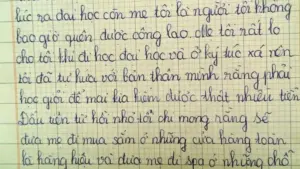 lúc ra đại học còn mẹ tôi là người tôi không
bao giờ quên được công lao. Mẹ tôi rất lo
cho tôi khi đi học đại học và ở ký túc xá nên
tôi đã tự hứa với bản thân mình rằng phải
học giỏi để mai kia kiếm được thật nhiều tiền
Đầu tiên từ hồi nhỏ tôi chỉ mong rằng sẽ
đưa mẹ đi mua sắm ở những cửa hàng toàn
là hàng hiệu và đưa mẹ đi spa ở những phố